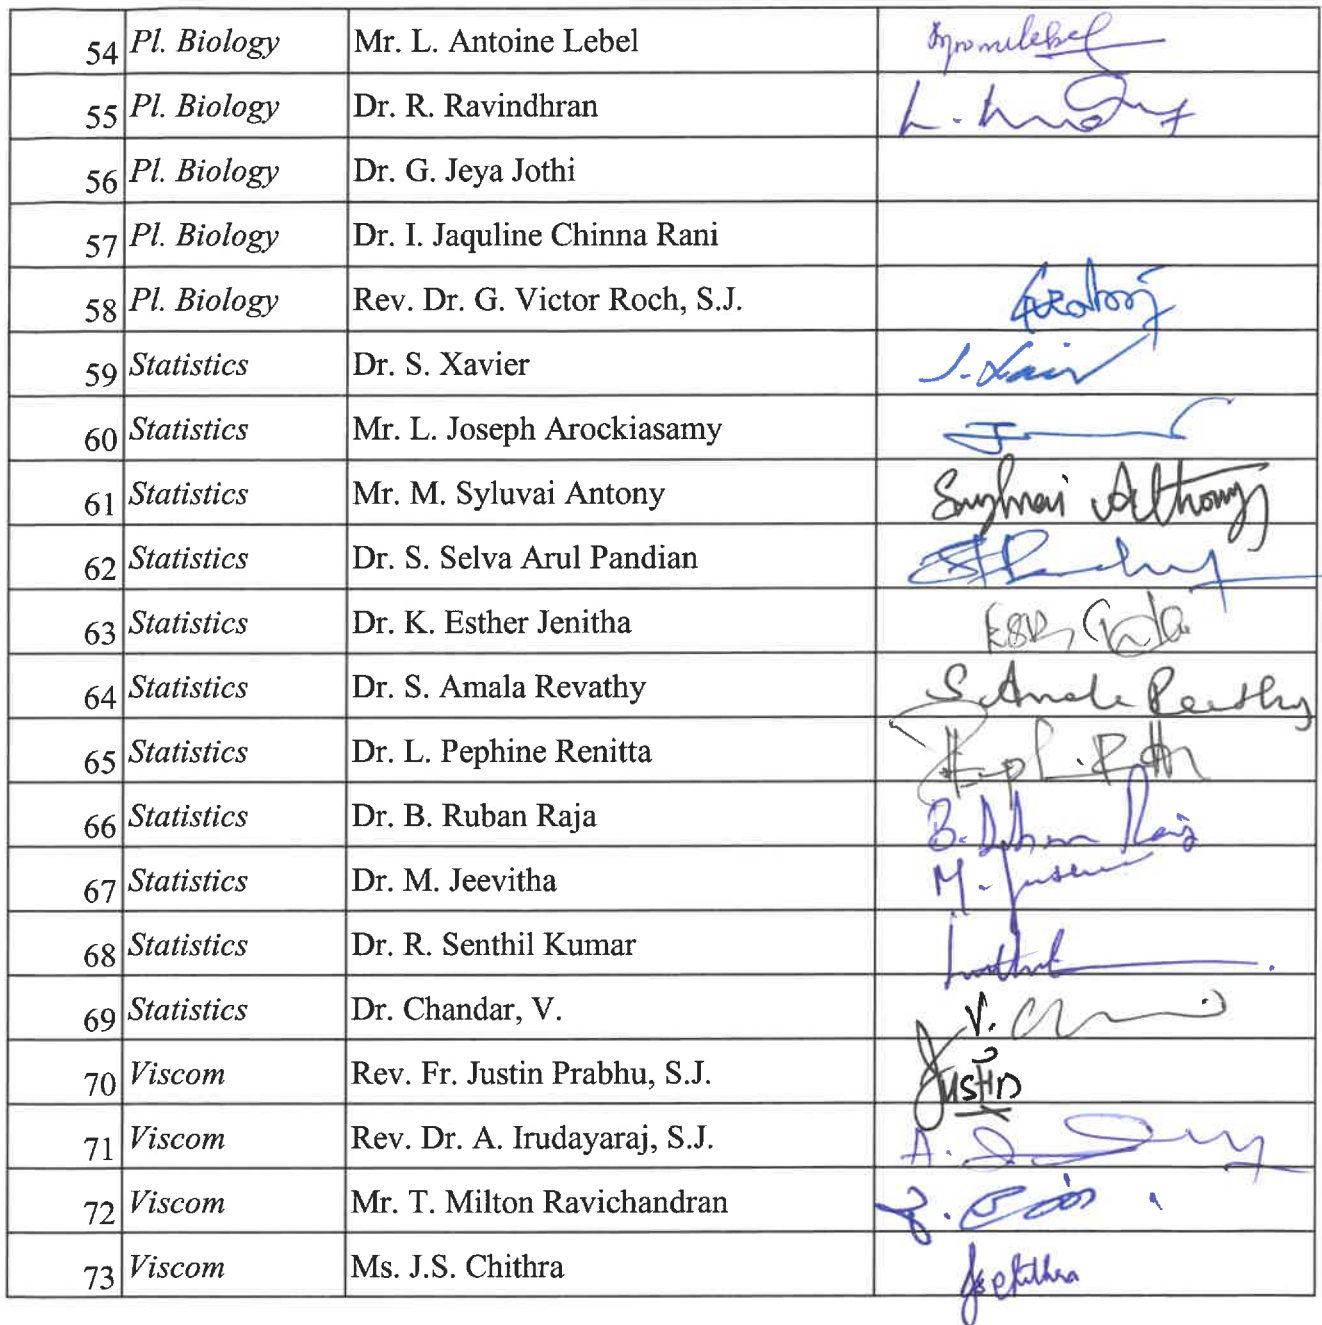 54 Pl. Biology Mr. L. Antoine Lebel
55 Pl. Biology Dr. R. Ravindhran
56 Pl. Biology Dr. G. Jeya Jothi
57 Pl. Biology Dr. I. Jaquline Chinna Rani
58 Pl. Biology Rev. Dr. G. Victor Roch, S.J.
59 Statistics Dr. S. Xavier
60 Statistics Mr. L. Joseph Arockiasamy
61 Statistics Mr. M. Syluvai Antony
62 Statistics Dr. S. Selva Arul Pandian
63 Statistics Dr. K. Esther Jenitha
64 Statistics Dr. S. Amala Revathy
65 Statistics Dr. L. Pephine Renitta
66 Statistics Dr. B. Ruban Raja
67 Statistics Dr. M. Jeevitha
68 Statistics Dr. R. Senthil Kumar
69 Statistics Dr. Chandar, V.
70 Viscom Rev. Fr. Justin Prabhu, S.J. Justin
71 Viscom Rev. Dr. A. Irudayaraj, S.J.
72 Viscom Mr. T. Milton Ravichandran
73 Viscom Ms. J.S. Chithra Js Chithra